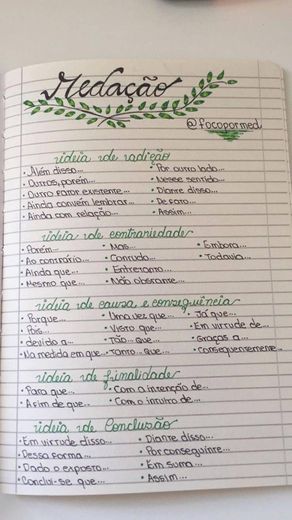 Redação
@focopormed
ideia de adição
• Além disso... • Por outro lado...
• Outros, porém... • Nesse sentido...
• Outro fator existente... • Diante disso...
• Ainda convém lembrar... • De fato...
• Ainda com relação... • Assim...
ideia de contrariedade
• Porém... • Mas... • Embora...
• Ao contrário... • Contudo... • Todavia...
• Ainda que... • Entretanto...
• Mesmo que... • Não obstante...
ideia de causa e consequência
• Porque... • Uma vez que... • Já que...
• Pois... • Visto que... • Em virtude de...
• devido a... • Tão... que... • Graças a...
• Na medida em que... • Tanto... que... • consequentemente...
ideia de finalidade
• Para que... • Com a intenção de...
• A fim de que... • Com o intuito de...
ideia de Conclusão
• Em virtude disso... • Diante disso...
• Dessa forma... • Por conseguinte...
• Dado o exposto... • Em suma...
• Conclui-se que... • Assim...